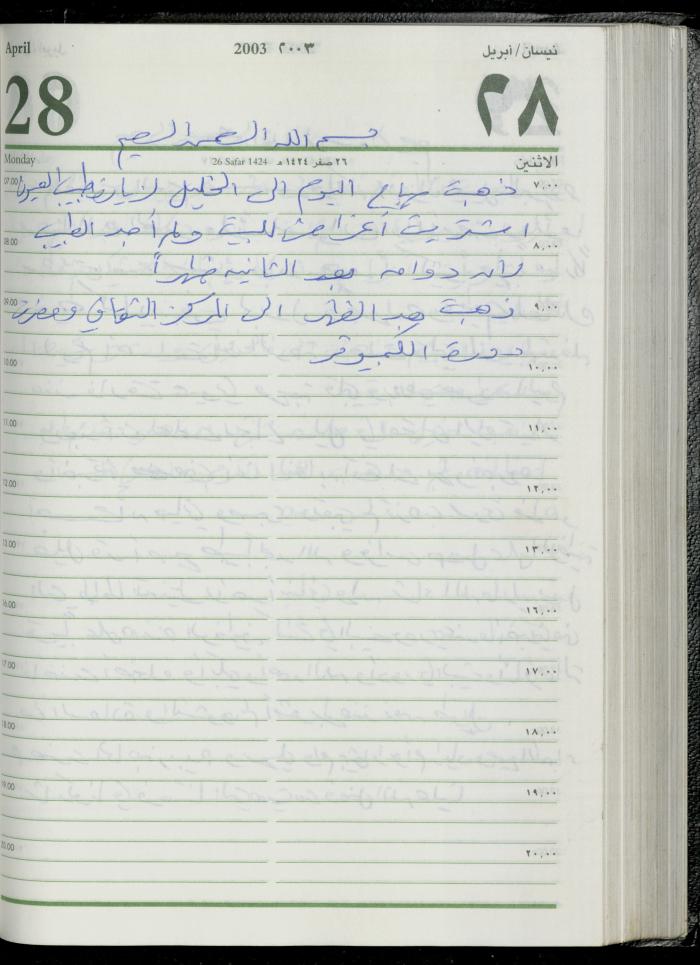 April 2003 ٢٠٠٣ نيسان/أبريل
28 ٢٨
بسم الله الرحمن الرحيم
Monday 26 Safar 1424 ٢٦ صفر ١٤٢٤ هـ الاثنين
07.00 ذهبت صباح اليوم الى الخليل لزيارة طبيب العيون ٧,٠٠
اشتريت أغراض للبيت ولم أجد الطبيب
08.00 ٨,٠٠
لأن دوامه بعد الثانيه ظهراً
09.00 ذهبت بعد الظهر الى المركز الثقافي وحضرت ٩,٠٠
دورة الكمبيوتر
10.00 ١٠,٠٠
11.00 ١١,٠٠
12.00 ١٢,٠٠
13.00 ١٣,٠٠
16.00 ١٦,٠٠
17.00 ١٧,٠٠
18.00 ١٨,٠٠
19.00 ١٩,٠٠
20.00 ٢٠,٠٠